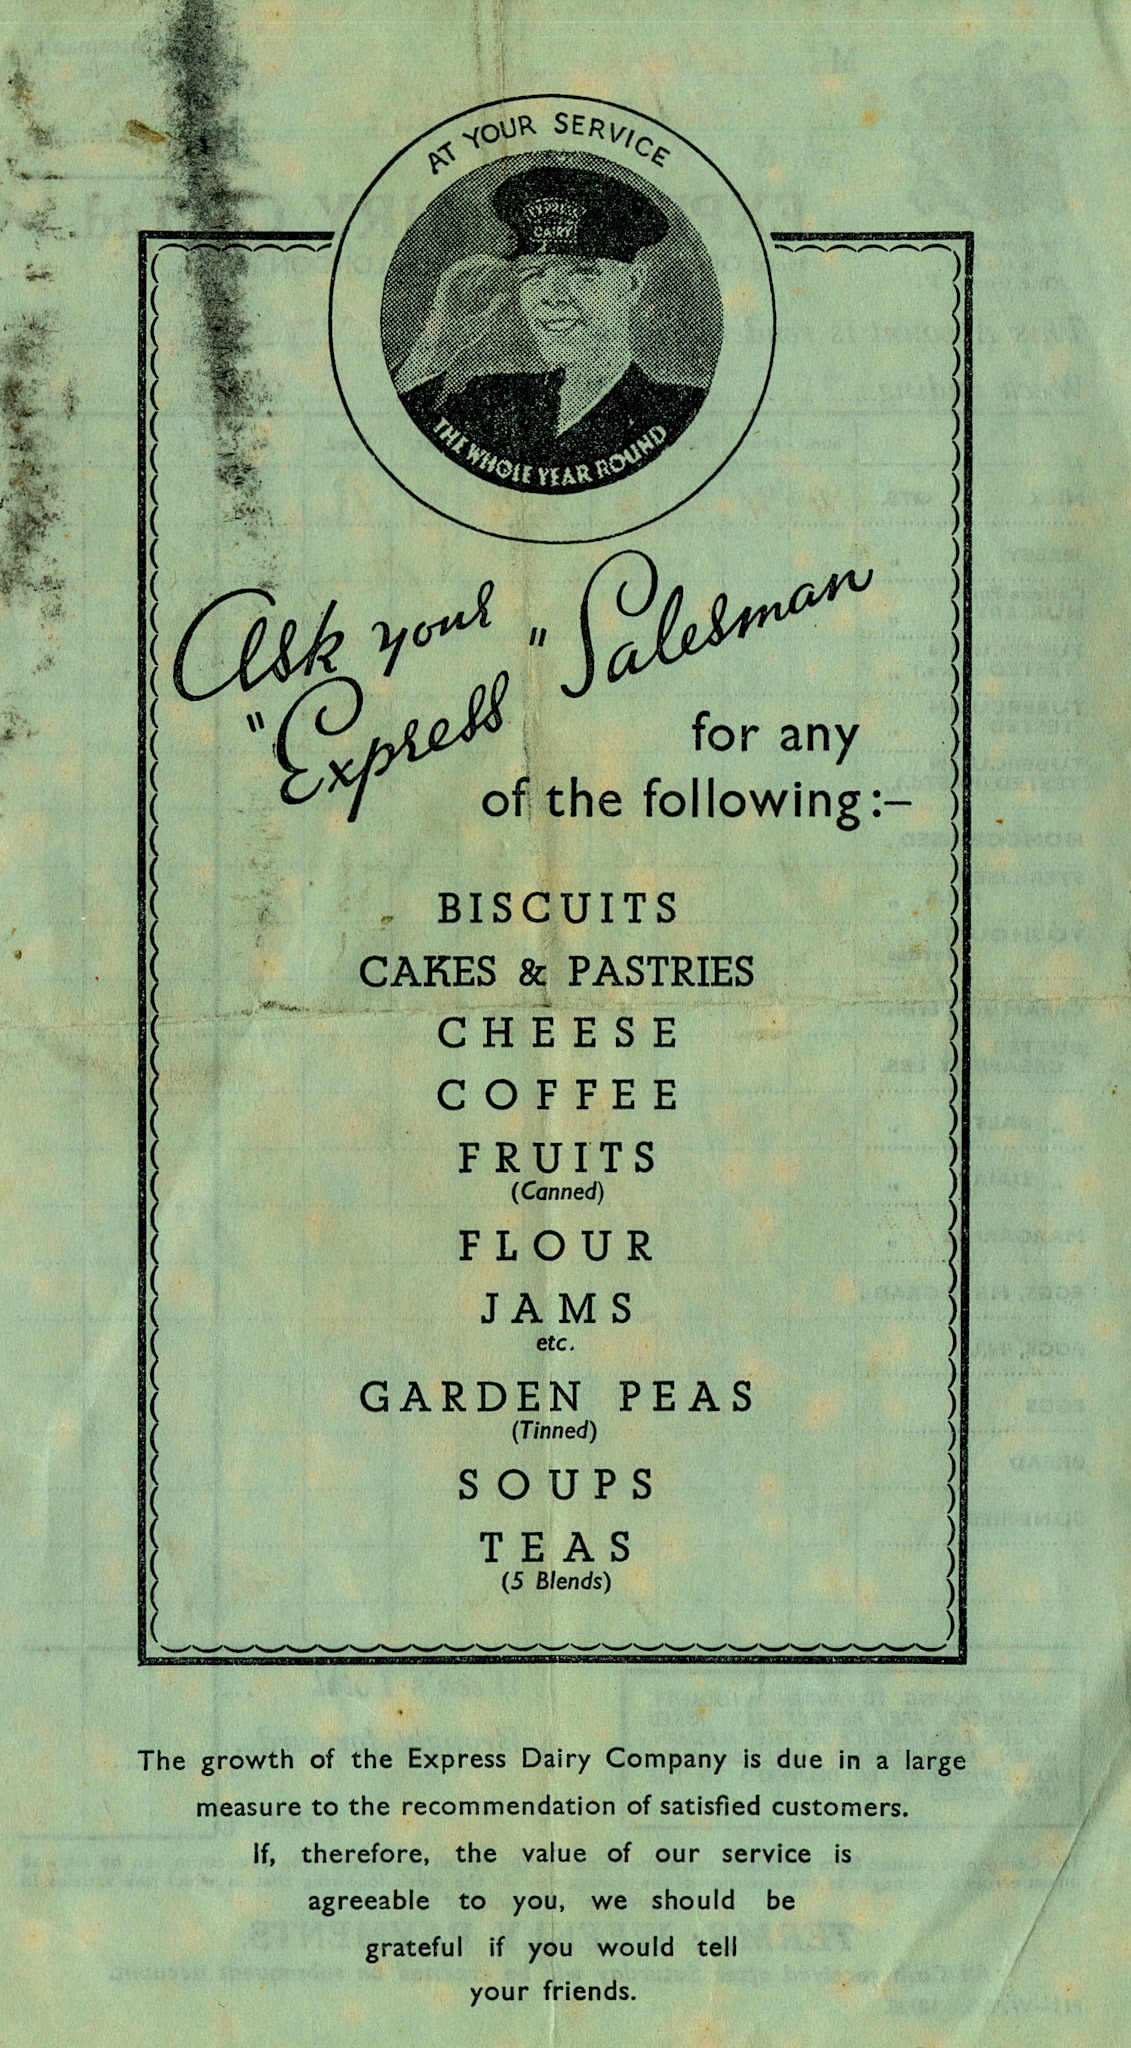 AT YOUR SERVICE
EXPRESS
DAIRY
THE WHOLE YEAR ROUND
Ask your
"Express" Salesman
for any
of the following:–
BISCUITS
CAKES & PASTRIES
CHEESE
COFFEE
FRUITS
(Canned)
FLOUR
JAMS
etc.
GARDEN PEAS
(Tinned)
SOUPS
TEAS
(5 Blends)
The growth of the Express Dairy Company is due in a large
measure to the recommendation of satisfied customers.
If, therefore, the value of our service is
agreeable to you, we should be
grateful if you would tell
your friends.